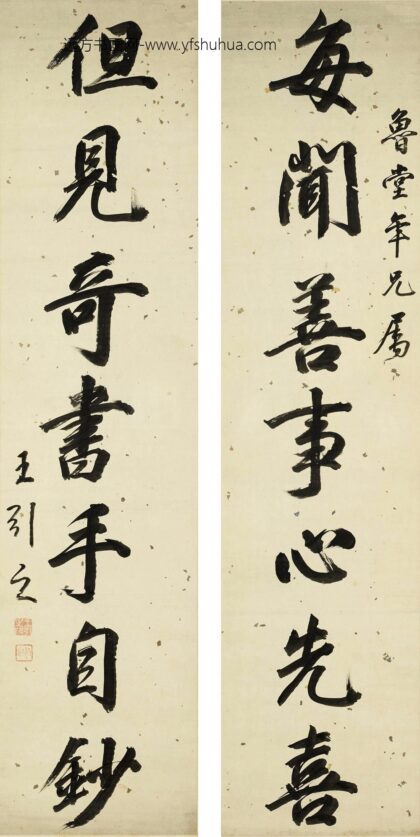 魯堂年兄屬
每聞善事心先喜
但見奇書手自鈔
王引之
www.yfshuhua.com